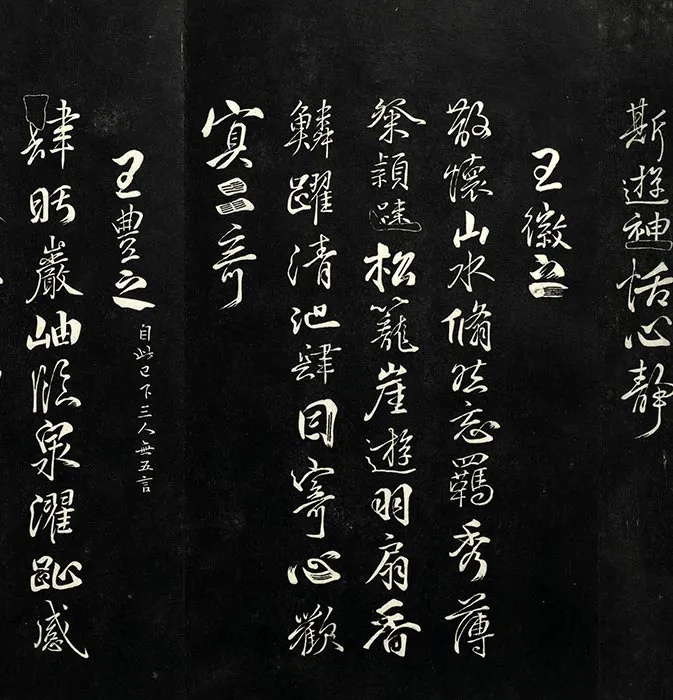 斯遊神恬心靜
王徽之
散懷山水翛然忘羈秀薄
粲穎疎松籠崖遊羽扇香
鱗躍清池肆目寄心歡
冥二奇
王豐之
自此已下三人無五言
肆眄巖岫臨泉濯趾感